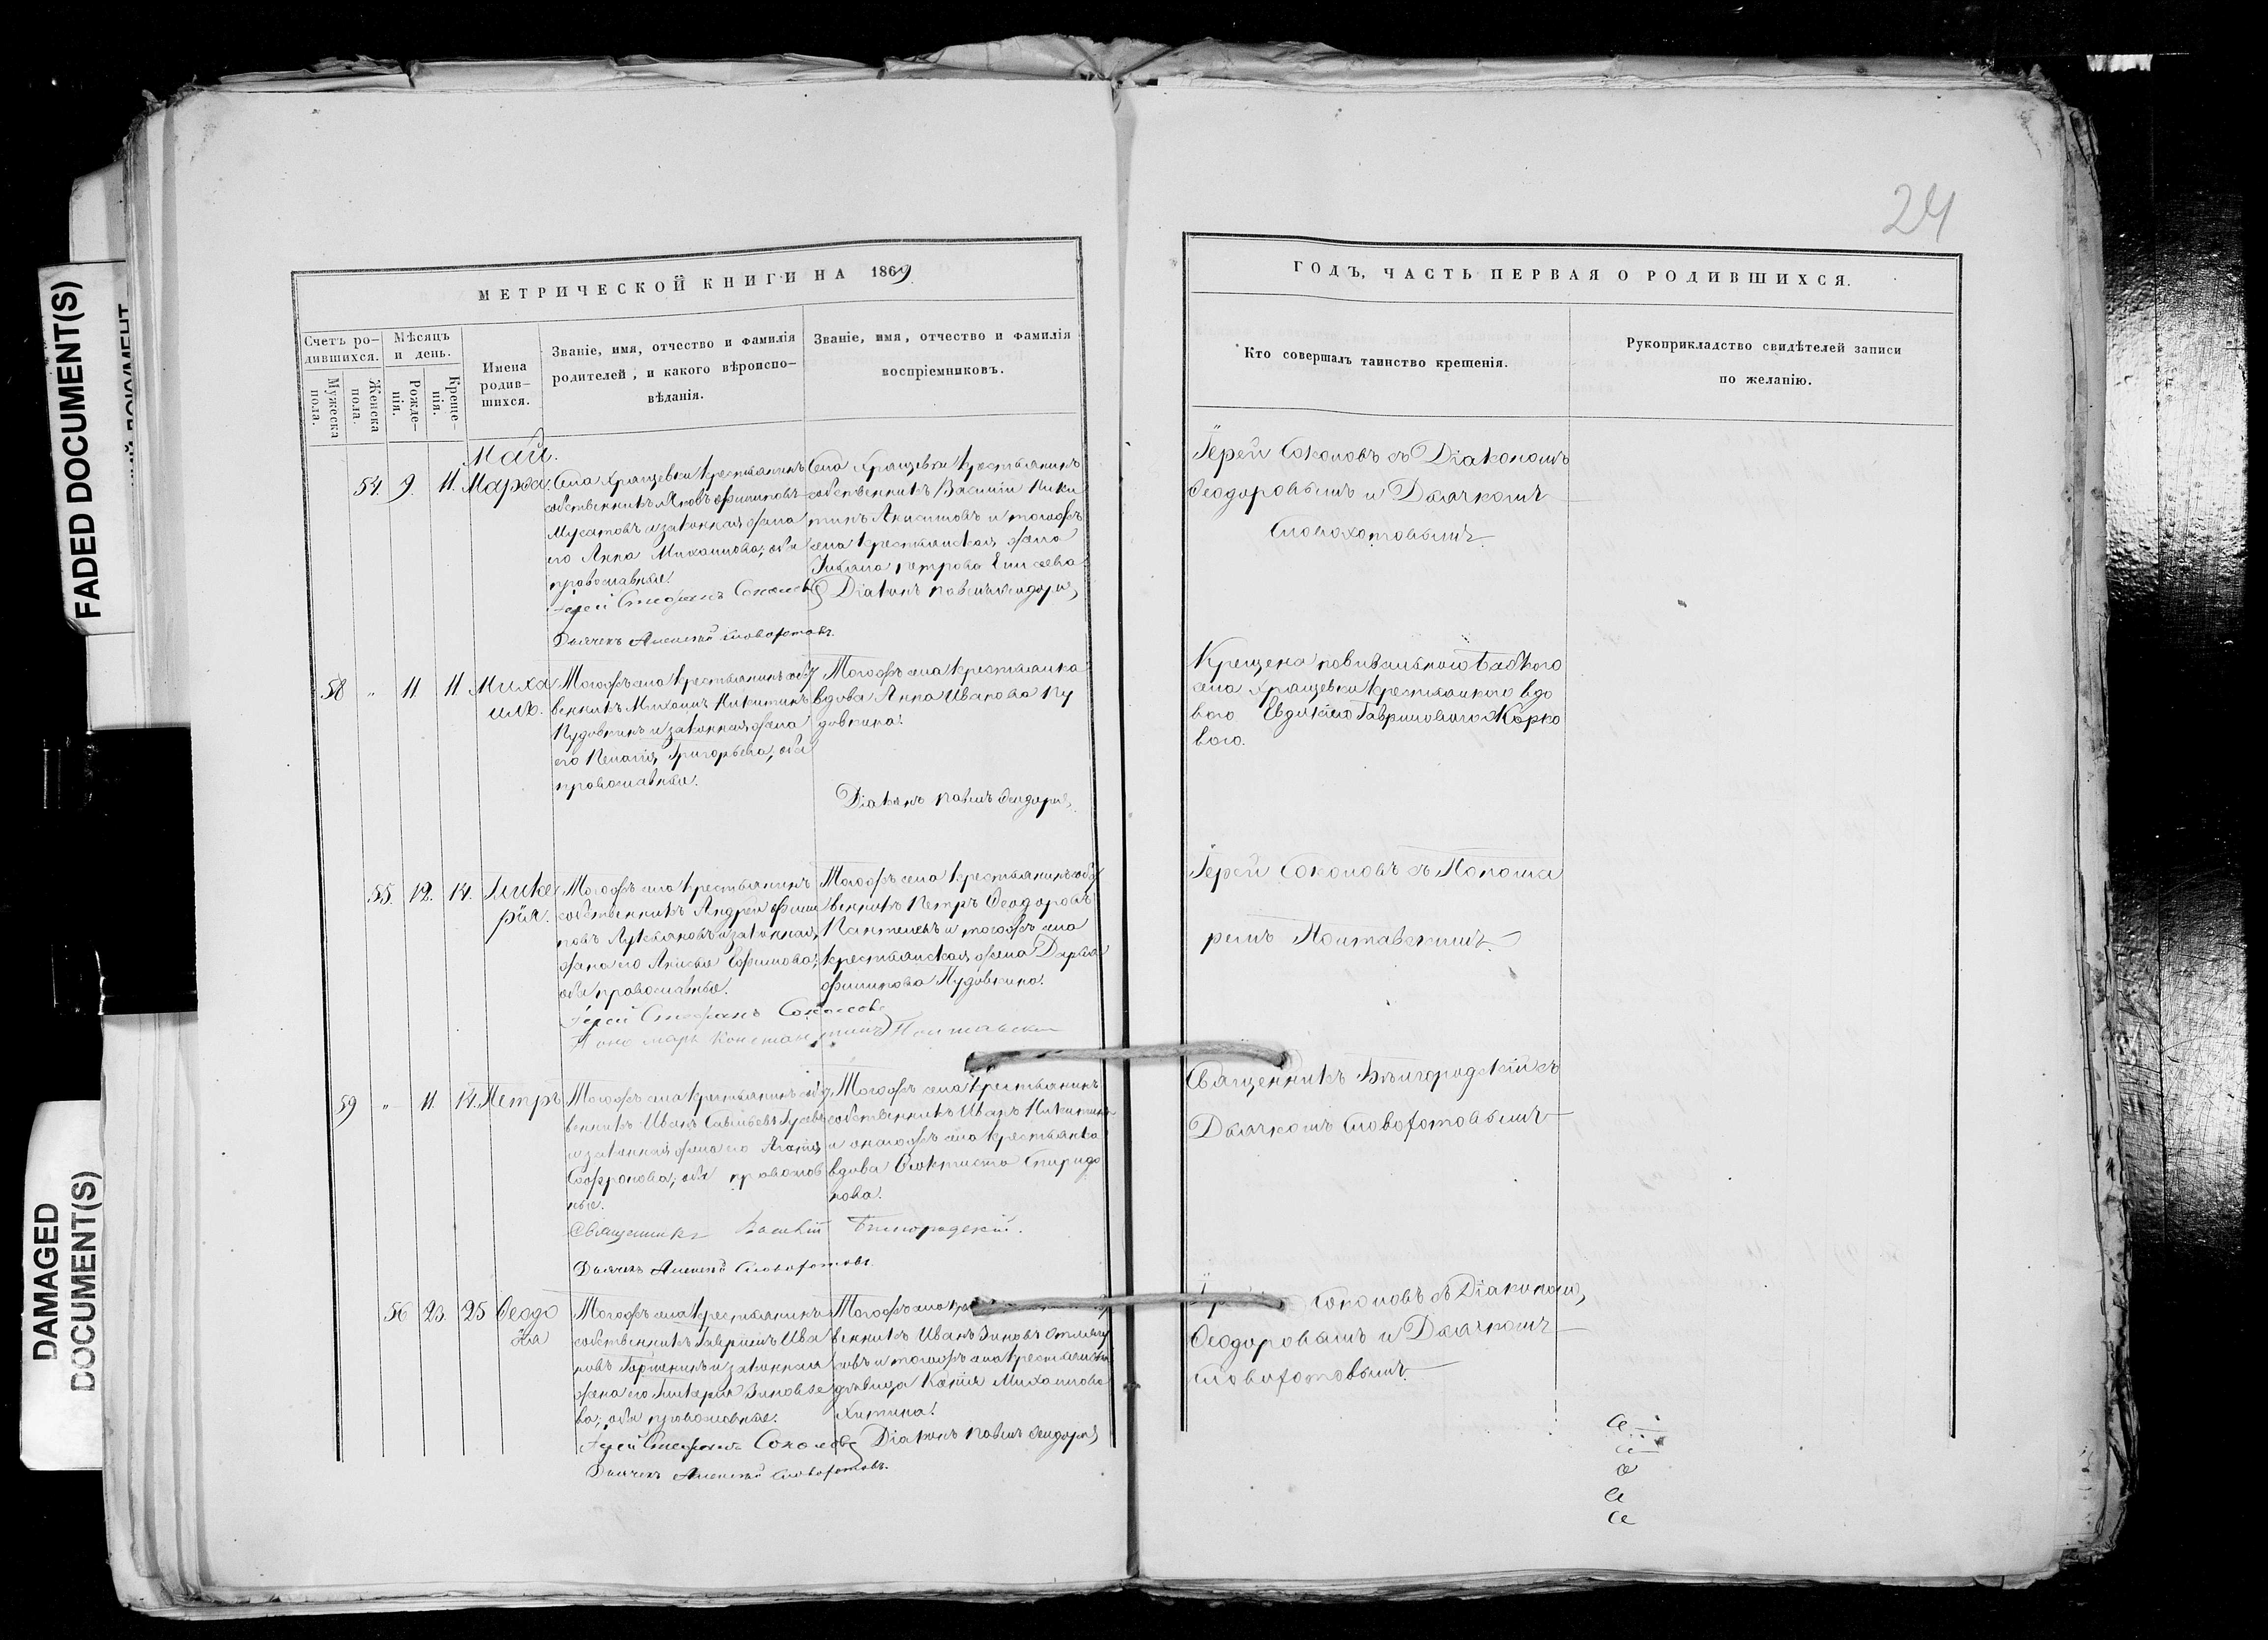 24
FADED DOCUMENT(S)
DAMAGED
DOCUMENT(S)
МЕТРИЧЕСКОЙ КНИГИ НА 1869
Счетъ ро-
дившихся.
Мужеска
пола.
Женска
пола.
Мѣсяцъ
и день.
Рожде-
нія.
Креще-
нія.
Имена
родив-
шихся.
Званіе, имя, отчество и фамилія
родителей, и какого вѣроиспо-
вѣданія.
Званіе, имя, отчество и фамилія
воспріемниковъ.
ГОДЪ, ЧАСТЬ ПЕРВАЯ О РОДИВШИХСЯ.
Кто совершалъ таинство крещенія.
Рукоприкладство свидѣтелей записи
по желанію.
Май.
54. 9. 11. Марѳа.
Села Хрящевки крестьянинъ
собственникъ Яковъ Филиповъ
Мусатовъ и законная жена
его Анна Михаилова; оба
православные.
Іерей Стефанъ Соколовъ
Дьячекъ Алексей Словохотовъ.
Села Хрящевки крестьянинъ
собственникъ Василій Ники
тинъ Анисимовъ и тогожъ
села крестьянская жена
Петрова
Діаконъ Павелъ Феодоровъ
Іерей Соколовъ съ Діакономъ
Феодоровымъ и Дьячкомъ
Словохотовымъ.
58 " 11 11 Миха
илъ.
Тогожъ села крестьянинъ собст
венникъ Михаилъ Никитинъ
Пудовкинъ и законная жена
его Пелагія Григорьева, оба
православные.
Тогожъ села крестьянка
вдова Анна Иванова Пу
довкина.
Діаконъ Павелъ Феодоровъ
Крещена повивальною бабкою
села Хрящевки крестьянкою вдо
вою Евдокіею Гавриловою Жарко
вою.
55. 12. 14. Глике
рія.
Тогожъ села крестьянинъ
собственникъ Андрей Фили
повъ Лукьяновъ и законная
жена его Анисья Ефимова;
оба православные.
Іерей Стефанъ Соколовъ
Пономарь Константинъ Полтавскій
Тогожъ села крестьянинъ собст
венникъ Петръ Феодоровъ
Пантелеевъ и тогожъ села
крестьянская жена Дарья
Филипова Пудовкина.
Іерей Соколовъ съ Понома
ремъ Полтавскимъ.
59 " 11. 14. Петръ
Тогожъ села крестьянинъ собст
венникъ Иванъ Савельевъ Гусевъ
и законная жена его Агафія
Софронова; оба православ
ные.
Священникъ Василій Бѣлгородскій.
Дьячекъ Алексей Словохотовъ.
Тогожъ села крестьянинъ
собственникъ Иванъ Никитинъ
и оногожъ села крестьянка
вдова Феоктиста Спиридо
нова.
Священникъ Бѣлгородскій съ
Дьячкомъ Словохотовымъ
56 23. 25 Феодо
сія
Тогожъ села крестьянинъ
собственникъ Гавріилъ Ива
новъ Горшенинъ и законная
жена его Гликерія Зиновье
ва; оба православные.
Іерей Стефанъ Соколовъ
Дьячекъ Алексей Словохотовъ.
Тогожъ села
венникъ Иванъ Зиновъ
и тогожъ села крестьянская
дѣвица Ксенія Михаилова
Хитина.
Діаконъ Павелъ Феодоровъ
Соколовъ съ Діакономъ
Феодоровымъ и Дьячкомъ
Словохотовымъ.